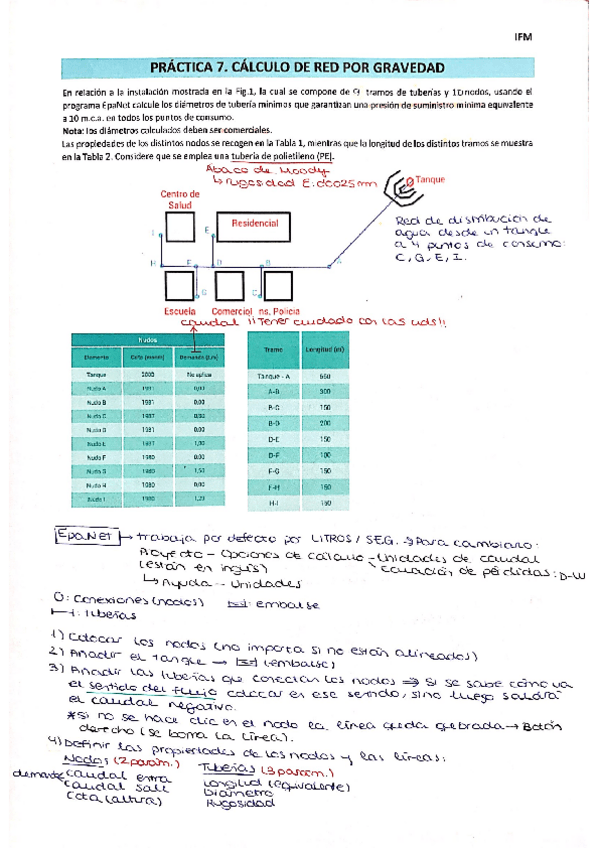 IFM
PRÁCTICA 7. CÁLCULO DE RED POR GRAVEDAD
En relación a la instalación mostrada en la Fig.1, la cual se compone de 9 tramos de tuberías y 10 nodos, usando el
programa EpaNet calcule los diámetros de tubería mínimos que garantizan una presión de suministro mínima equivalente
a 10 m.c.a. en todos los puntos de consumo.
Nota: los diámetros calculados deben ser comerciales.
Las propiedades de los distintos nudos se recogen en la Tabla 1, mientras que la longitud de los distintos tramos se muestra
en la Tabla 2. Considere que se emplea una tubería de polietileno (PE).
Ábaco de Moody
↳ rugosidad E: 0'0025mm
Tanque
Centro de
Salud
Residencial
Red de distribución de
agua desde un tanque
a 4 puntos de consumo:
C, G, E, I.
I
E
H F D B A
G C
Escuela Comercial Ins. Policía
caudal ¡¡Tener cuidado con las uds!!
Nudos
Elemento Cota (msnm) Demanda (L/s)
Tanque 2000 No aplica
Nudo A
Nudo B 0,00
Nudo C
Nudo D 0,00
Nudo E 1,00
Nudo F 1980 0,00
Nudo G 1980 1,50
Nudo H 1980 0,00
Nudo I 1980
Tramo Longitud (m)
Tanque - A
A-B 300
B-C 150
B-D 200
D-E 150
D-F 100
F-G 150
F-H 150
H-I 150
EpaNet → trabaja por defecto por LITROS / SEG. → Para cambiarlo:
Proyecto - Opciones de cálculo - Unidades de caudal
(están en inglés) ecuación de pérdidas: D-W
↳ Ayuda - Unidades
O: conexiones (nodos) : embalse
: tuberías
1) Colocar los nodos (no importa si no están alineados)
2) Añadir el tanque → (embalse)
3) Añadir las tuberías que conectan los nodos ⇒ Si se sabe cómo va
el sentido del flujo colocar en ese sentido, sino luego saldrá
el caudal negativo.
*Si no se hace clic en el nodo la línea queda quebrada → Botón
derecho (se borra la línea).
4) Definir las propiedades de los nodos y las líneas:
Nodos (2 param.) Tuberías (3 param.)
demanda caudal entra Longitud (equivalente)
caudal sale Diámetro
Cota (altura) Rugosidad